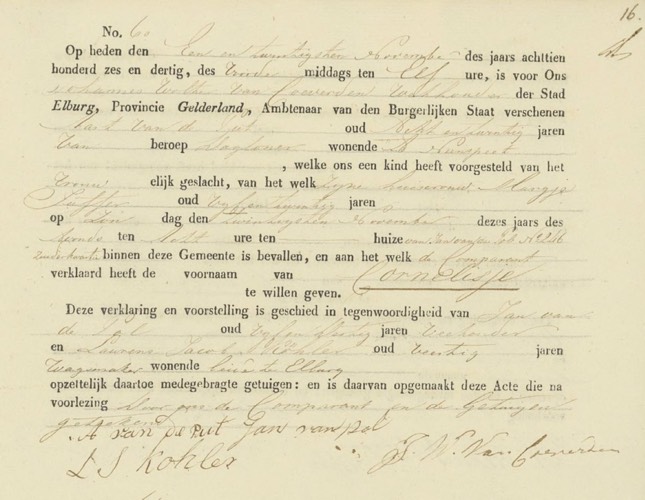 16.
No. 60
Op heden den Een en twintigsten November des jaars achttien
honderd zes en dertig, des voor middags ten Elf ure, is voor Ons
Johannes van Coeverden der Stad
Elburg, Provincie Gelderland, Ambtenaar van den Burgerlijken Staat verschenen
Aart van de Put oud en twintig jaren
van beroep Daglooner wonende
, welke ons een kind heeft voorgesteld van het
Vrouw elijk geslacht, van het welk zijne huisvrouw
oud en twintig jaren
op Zon dag den twintigsten November dezes jaars des
avonds ten acht ure ten huize van No 246
binnen deze Gemeente is bevallen, en aan het welk de Comparant
verklaard heeft de voornaam van Cornelisje
te willen geven.
Deze verklaring en voorstelling is geschied in tegenwoordigheid van Jan van
de Pol oud jaren
en Laurens Jacob Köhler oud veertig jaren
Wagemaker wonende te Elburg
opzettelijk daartoe medegebragte getuigen: en is daarvan opgemaakt deze Acte die na
voorlezing door ons de Comparant en de Getuigen
geteekend.
A van de Put Jan van Pol
L J Kohler J. W. Van Coeverden